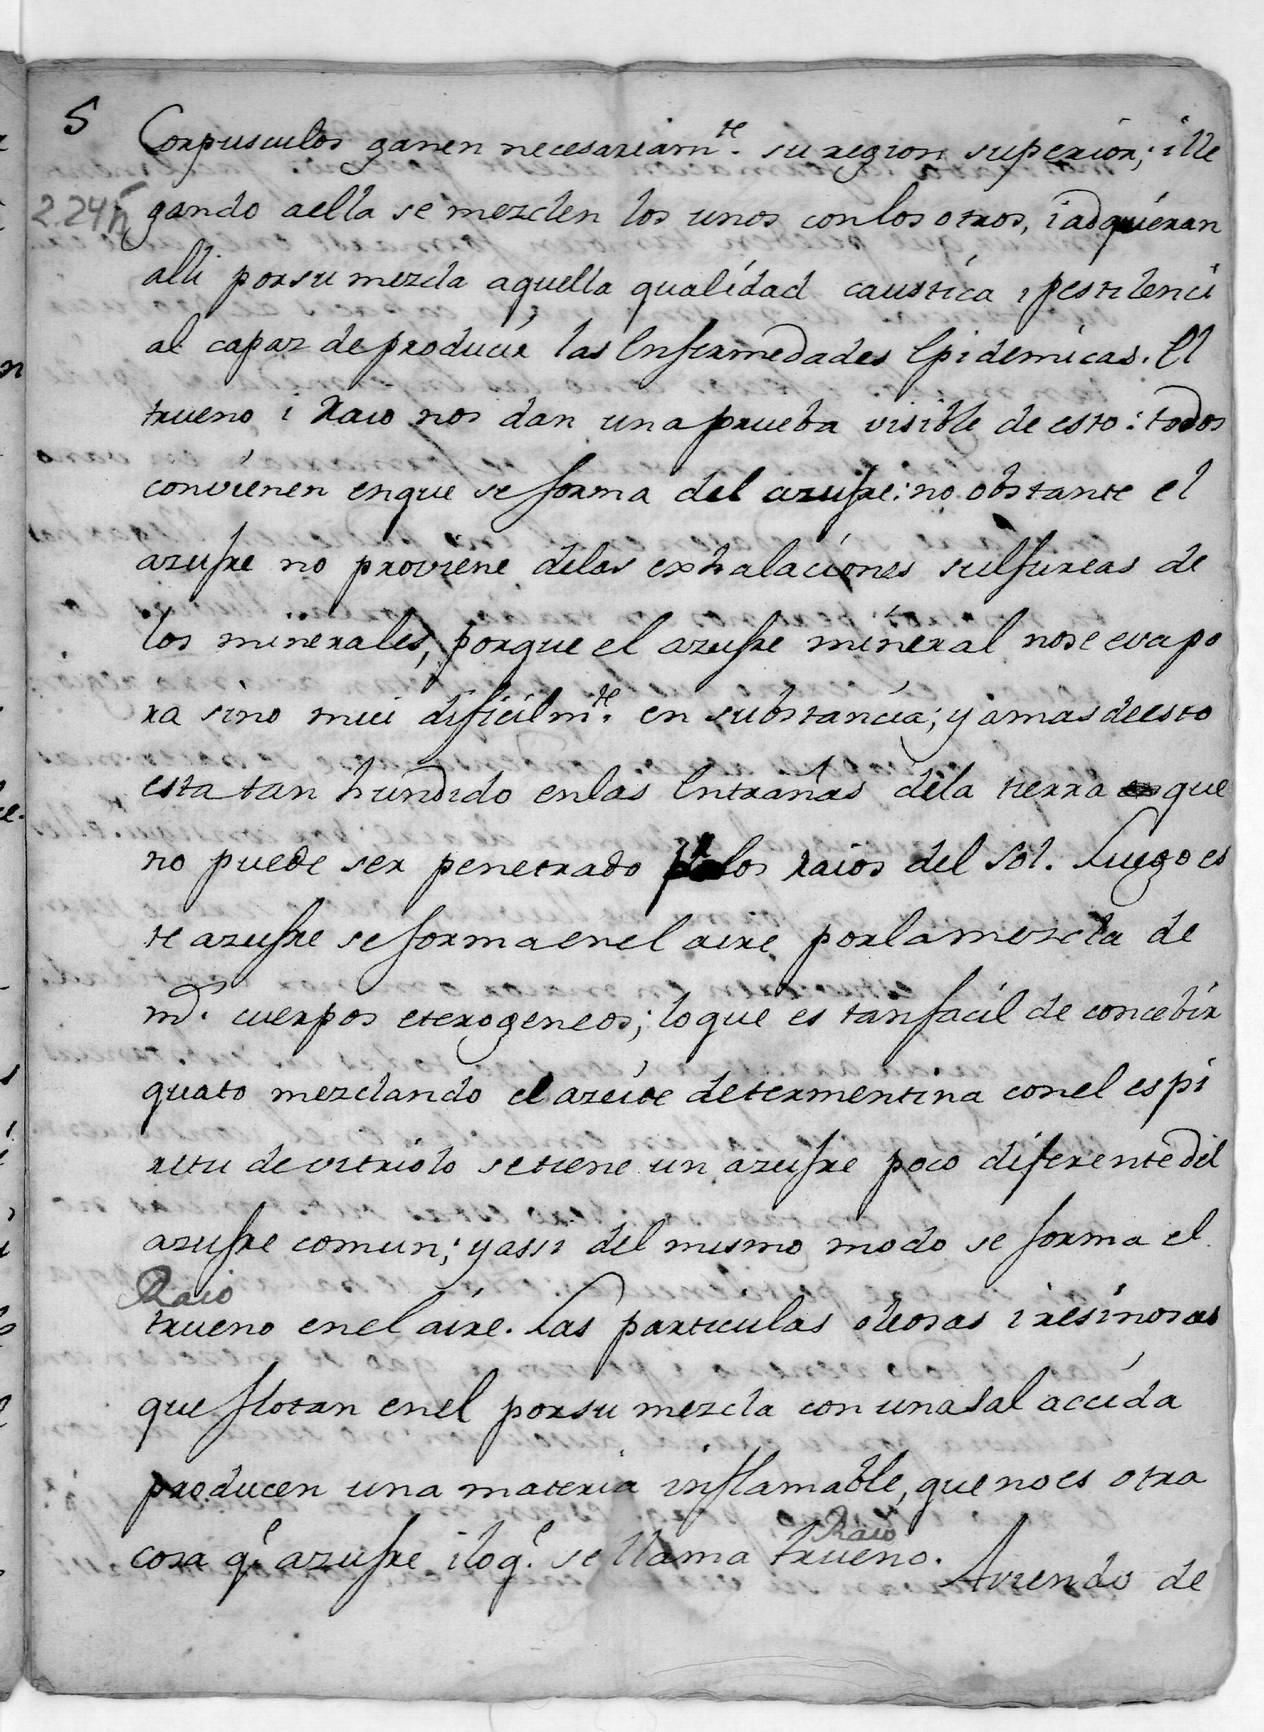 5
Corpusculos ganen necesariam.te su region superior; i lle
2.24
gando a ella se mezclen los unos con los otros, i adquieran
alli por su mezcla aquella qualidad caustica i pestilenci
al capaz de producir las Enfermedades Epidemicas. El
trueno i Raio nos dan una prueba visible de esto: todos
convienen en que se forma del azufre: no obstante el
azufre no proviene delas exhalaciones sulfureas de
los minerales, porque el azufre mineral nose evapo
ra sino mui dificilm.te en substancia; y amas deesto
esta tan hundido enlas Entrañas dela tierra que
no puede ser penetrado los raios del Sol. Luego es
te azufre se forma enel aire por la mezcla de
m.s cuerpos eterogeneos; loque es tan facil de concebir
quato mezclando el azeite determentina conel espi
ritu de vitriolo setiene un azufre poco diferente del
azufre comun; y assi del mismo modo se forma el
Raio
trueno enel aire. Las particulas oleosas i resinosas
que flotan enel por su mezcla con una sal accida
producen una materia inflamable, que no es otra
Raio
cosa q.e azufre i loq.e se llama trueno.
Aviendo de